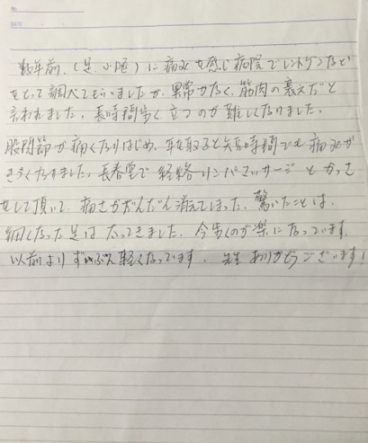 数年前、(足 小腿)に痛みを感じ病院でレントゲンなど
をとって調べてもらいましたが、異常がなく、筋肉の衰えだと
言われました。長時間歩く立つのが難しくなりました。
股関節が痛くなりはじめ、年を取ると短時間でも痛みが
きつくなりました。長春堂で経絡リンパマッサージとかっさ
をして頂いて、痛さがだんだん消えてしまった、驚いたことは、
細くなった足は太ってきました。今歩くのが楽になっています。
以前よりずいぶん軽くなっています。先生ありがとうございます!